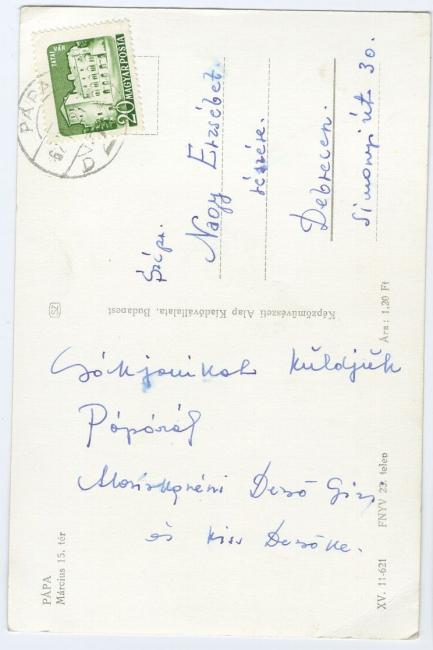 TATAI VÁR
20 MAGYAR POSTA
PÁPA
Szépr.
Nagy Erzsébet
részére.
Debrecen.
Simonyi út 30.
Képzőművészeti Alap Kiadóvállalata, Budapest
Ára: 1,20 Ft
Csókjainkat küldjük
Pápáról
Dezső Gizi
és Kiss Dezsőke.
PÁPA
Március 15. tér
XV. 11-621 FNYV 22. telep